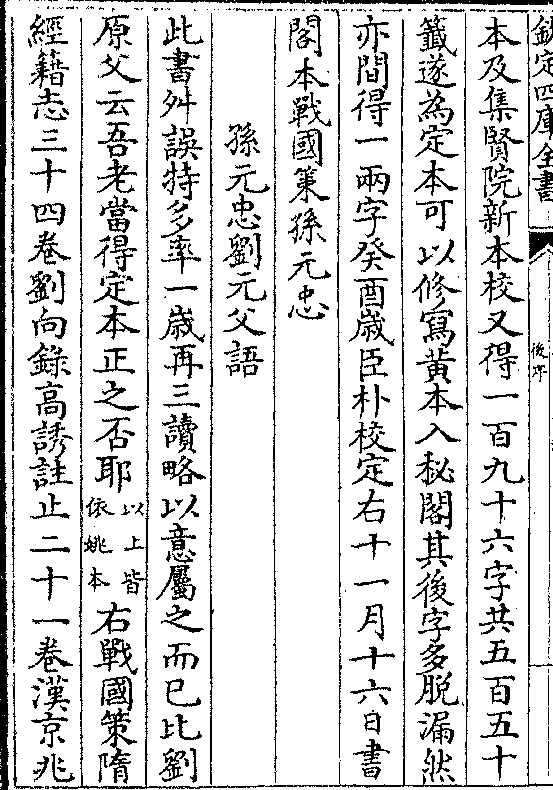 欽定四庫全書
後序
本及集賢院新本校又得一百九十六字共五百五十
籖遂為定本可以修寫黃本入秘閣其後字多脫漏然
亦間得一兩字癸酉歲臣朴校定右十一月十六日書
閣本戰國策孫元忠
孫元忠劉元父語
此書舛誤特多率一歲再三讀略以意屬之而已比劉
原父云吾老當得定本正之否耶以上皆依姚本右戰國策隋
經籍志三十四卷劉向錄高誘註止二十一卷漢京兆